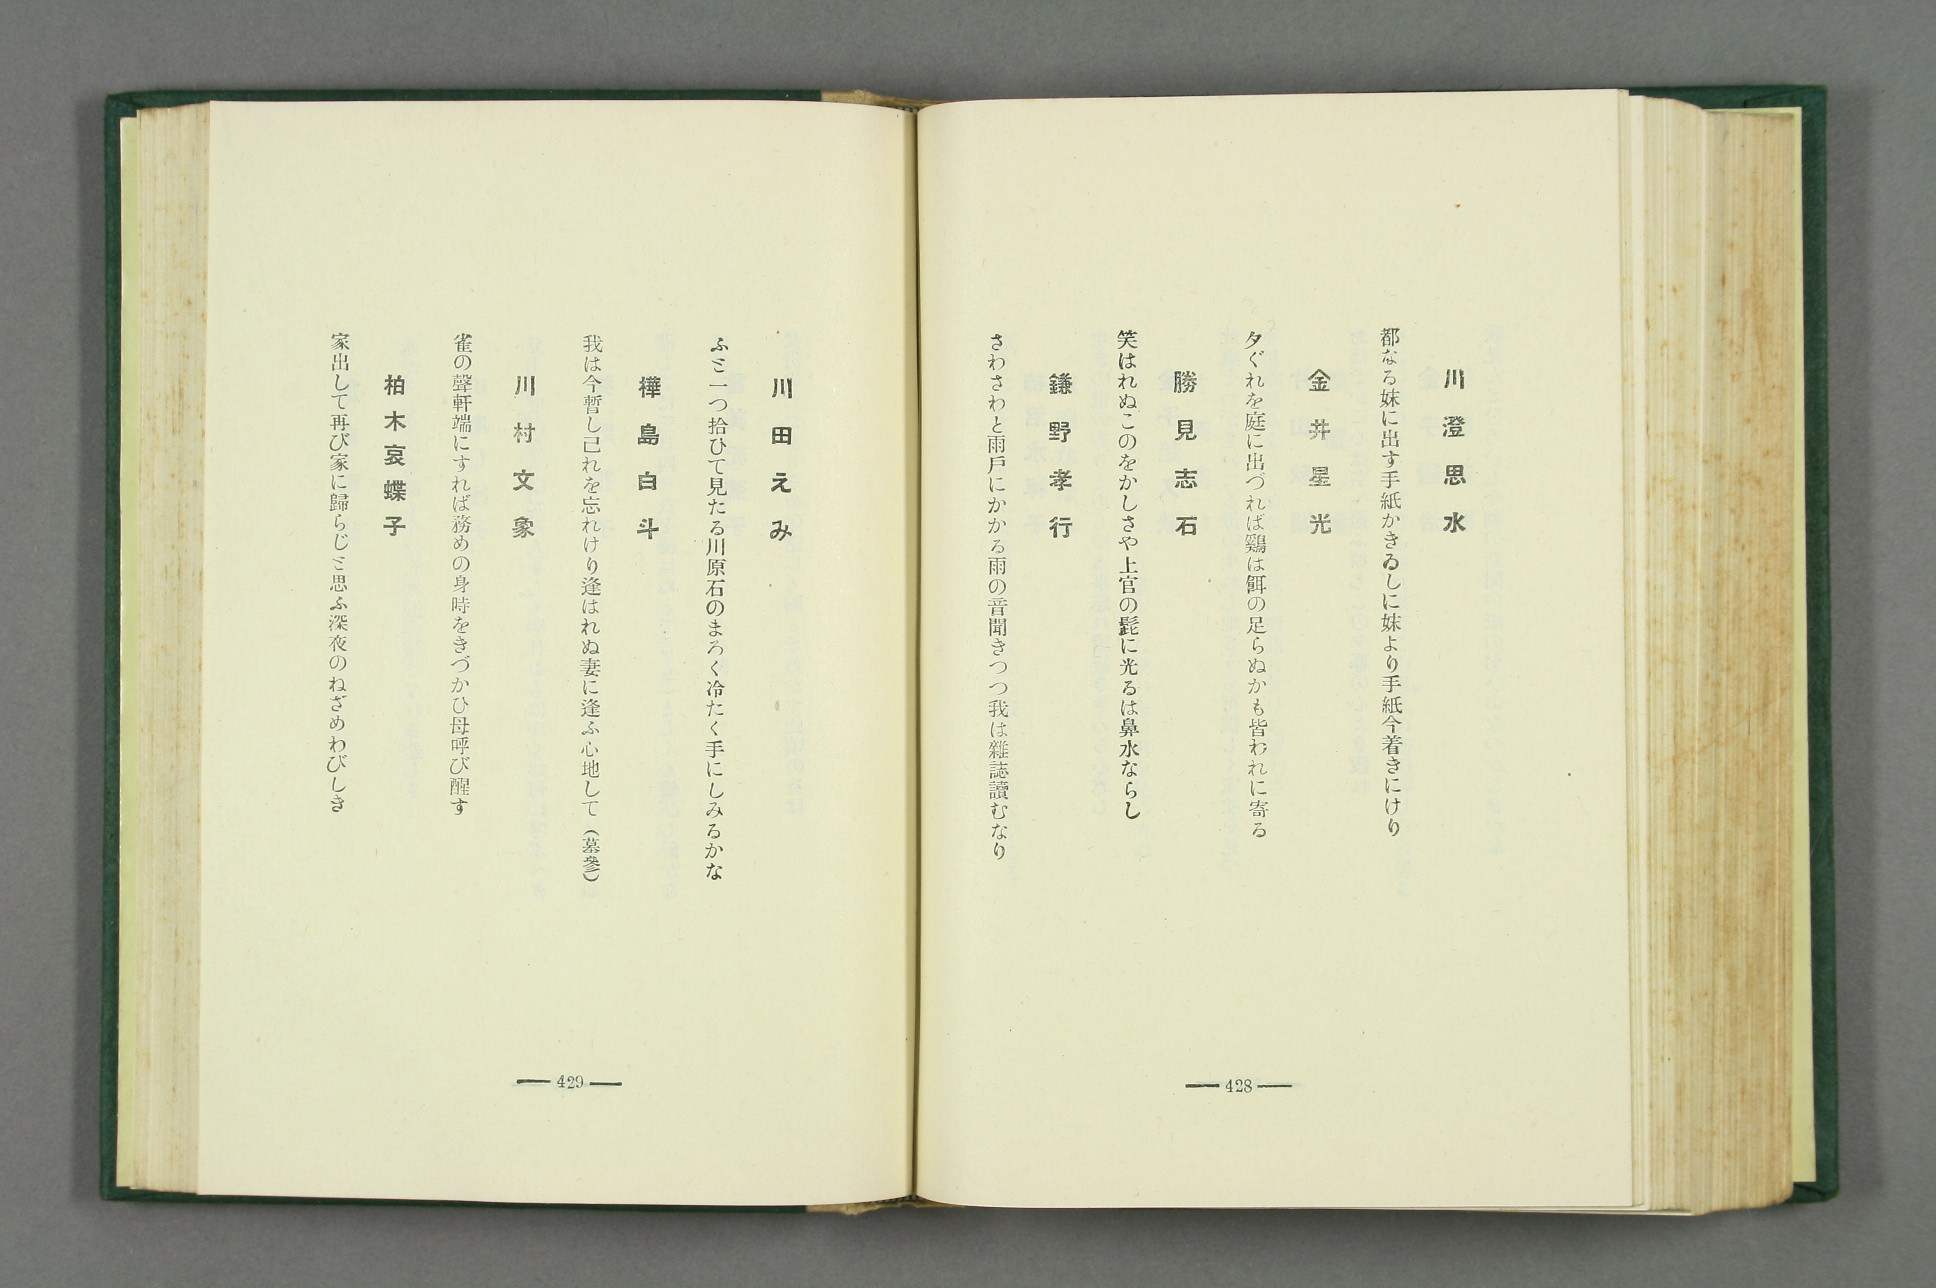 川澄思水
都なる妹に出す手紙かきゐしに妹より手紙今着きにけり
金井星光
夕ぐれを庭に出づれば鷄は餌の足らぬかも皆われに寄る
勝見志石
笑はれぬこのをかしさや上官の髭に光るは鼻水ならし
鎌野孝行
さわさわと雨戸にかかる雨の音聞きつつ我は雜誌讀むなり
428
川田えみ
ふと一つ拾ひて見たる川原石のまろく冷たく手にしみるかな
樺島白斗
我は今暫し己れを忘れけり逢はれぬ妻に逢ふ心地して（墓參）
川村文象
雀の聲軒端にすれば務めの身時をきづかひ母呼び醒す
柏木哀蝶子
家出して再び家に歸らじと思ふ深夜のねざめわびしき
429